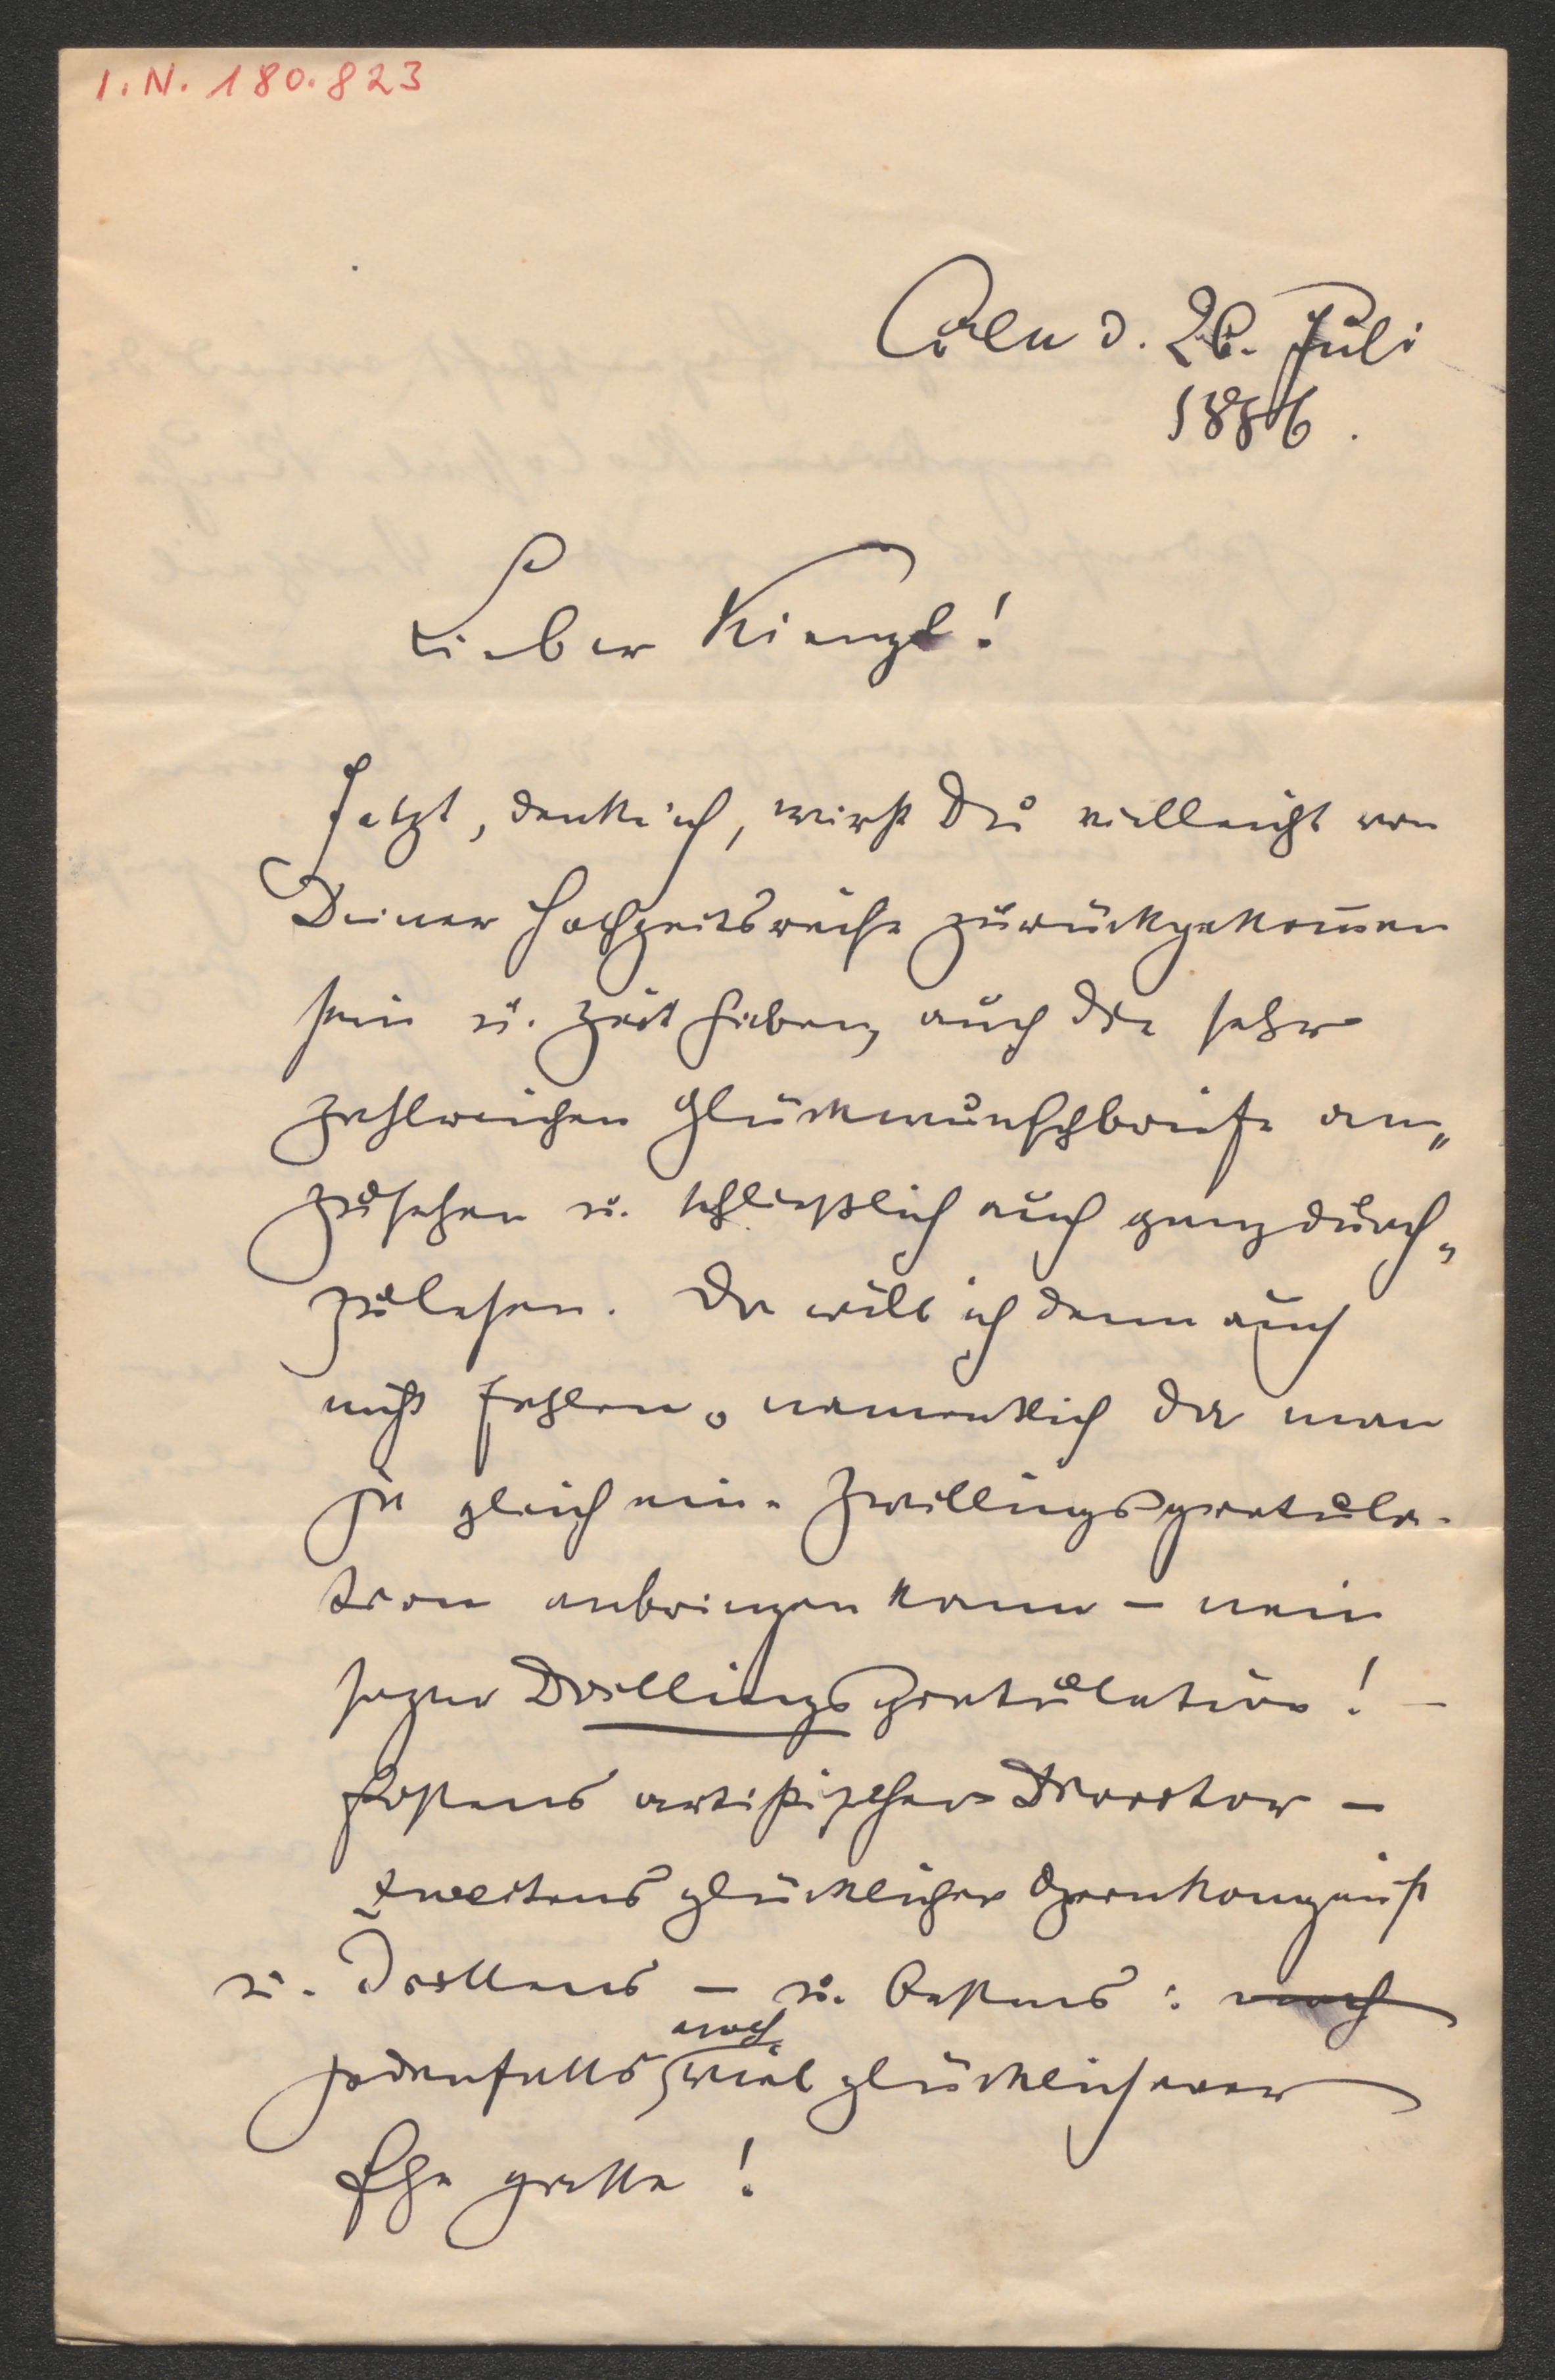 I.N. 180.823
Cöln d. 26. Juli
1886.
Lieber Kienzl!
Jetzt, denk' ich, wirst Du vielleicht von
Deiner Hochzeitsreise zurückgekom̅en
sein u. Zeit haben, auch die sehr
zahlreichen Glückwunschbriefe an„
zusehen u. schließlich auch ganz durch„
zulesen. Da will ich denn auch
nicht fehlen, namentlich da man
ja gleich eine Zwillingsgratula-
tion anbringen kann – nein
sogar Drillingsgratulation! –
Erstens artistischer Director –
zweitens glücklicher Opernkomponist
u. Drittens – u. Bestens: noch
jedenfalls noch viel glücklicherer
Ehegatte!